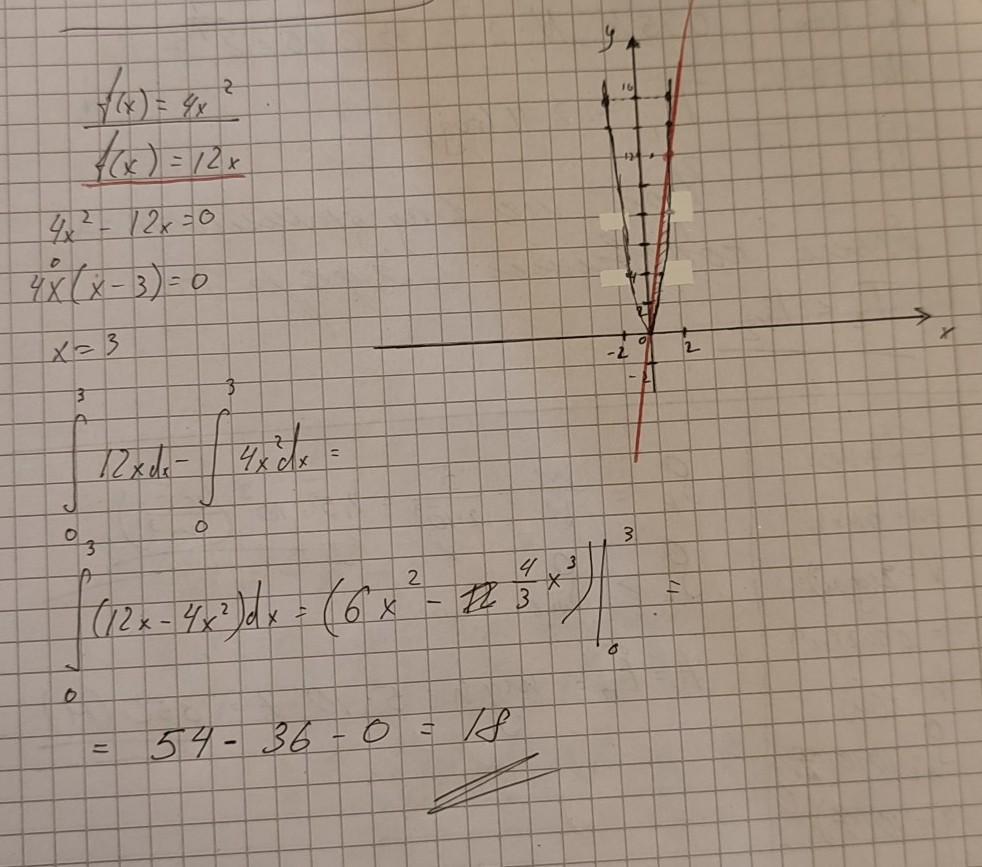 f(x) = 4x²
f(x) = 12x
4x² - 12x = 0
0
4x(x - 3) = 0
x = 3
∫₀³ 12x dx - ∫₀³ 4x² dx =
∫₀³ (12x - 4x²) dx = (6x² - 4/3 x³) |₀³ =
= 54 - 36 - 0 = 18
y
16
12
4
2
0
-2
2
x